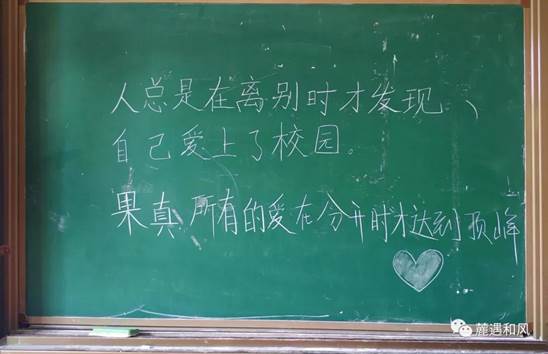 人总是在离别时才发现、
自己爱上了校园。
果真,所有的爱在分开时才达到顶峰
麓遇和风